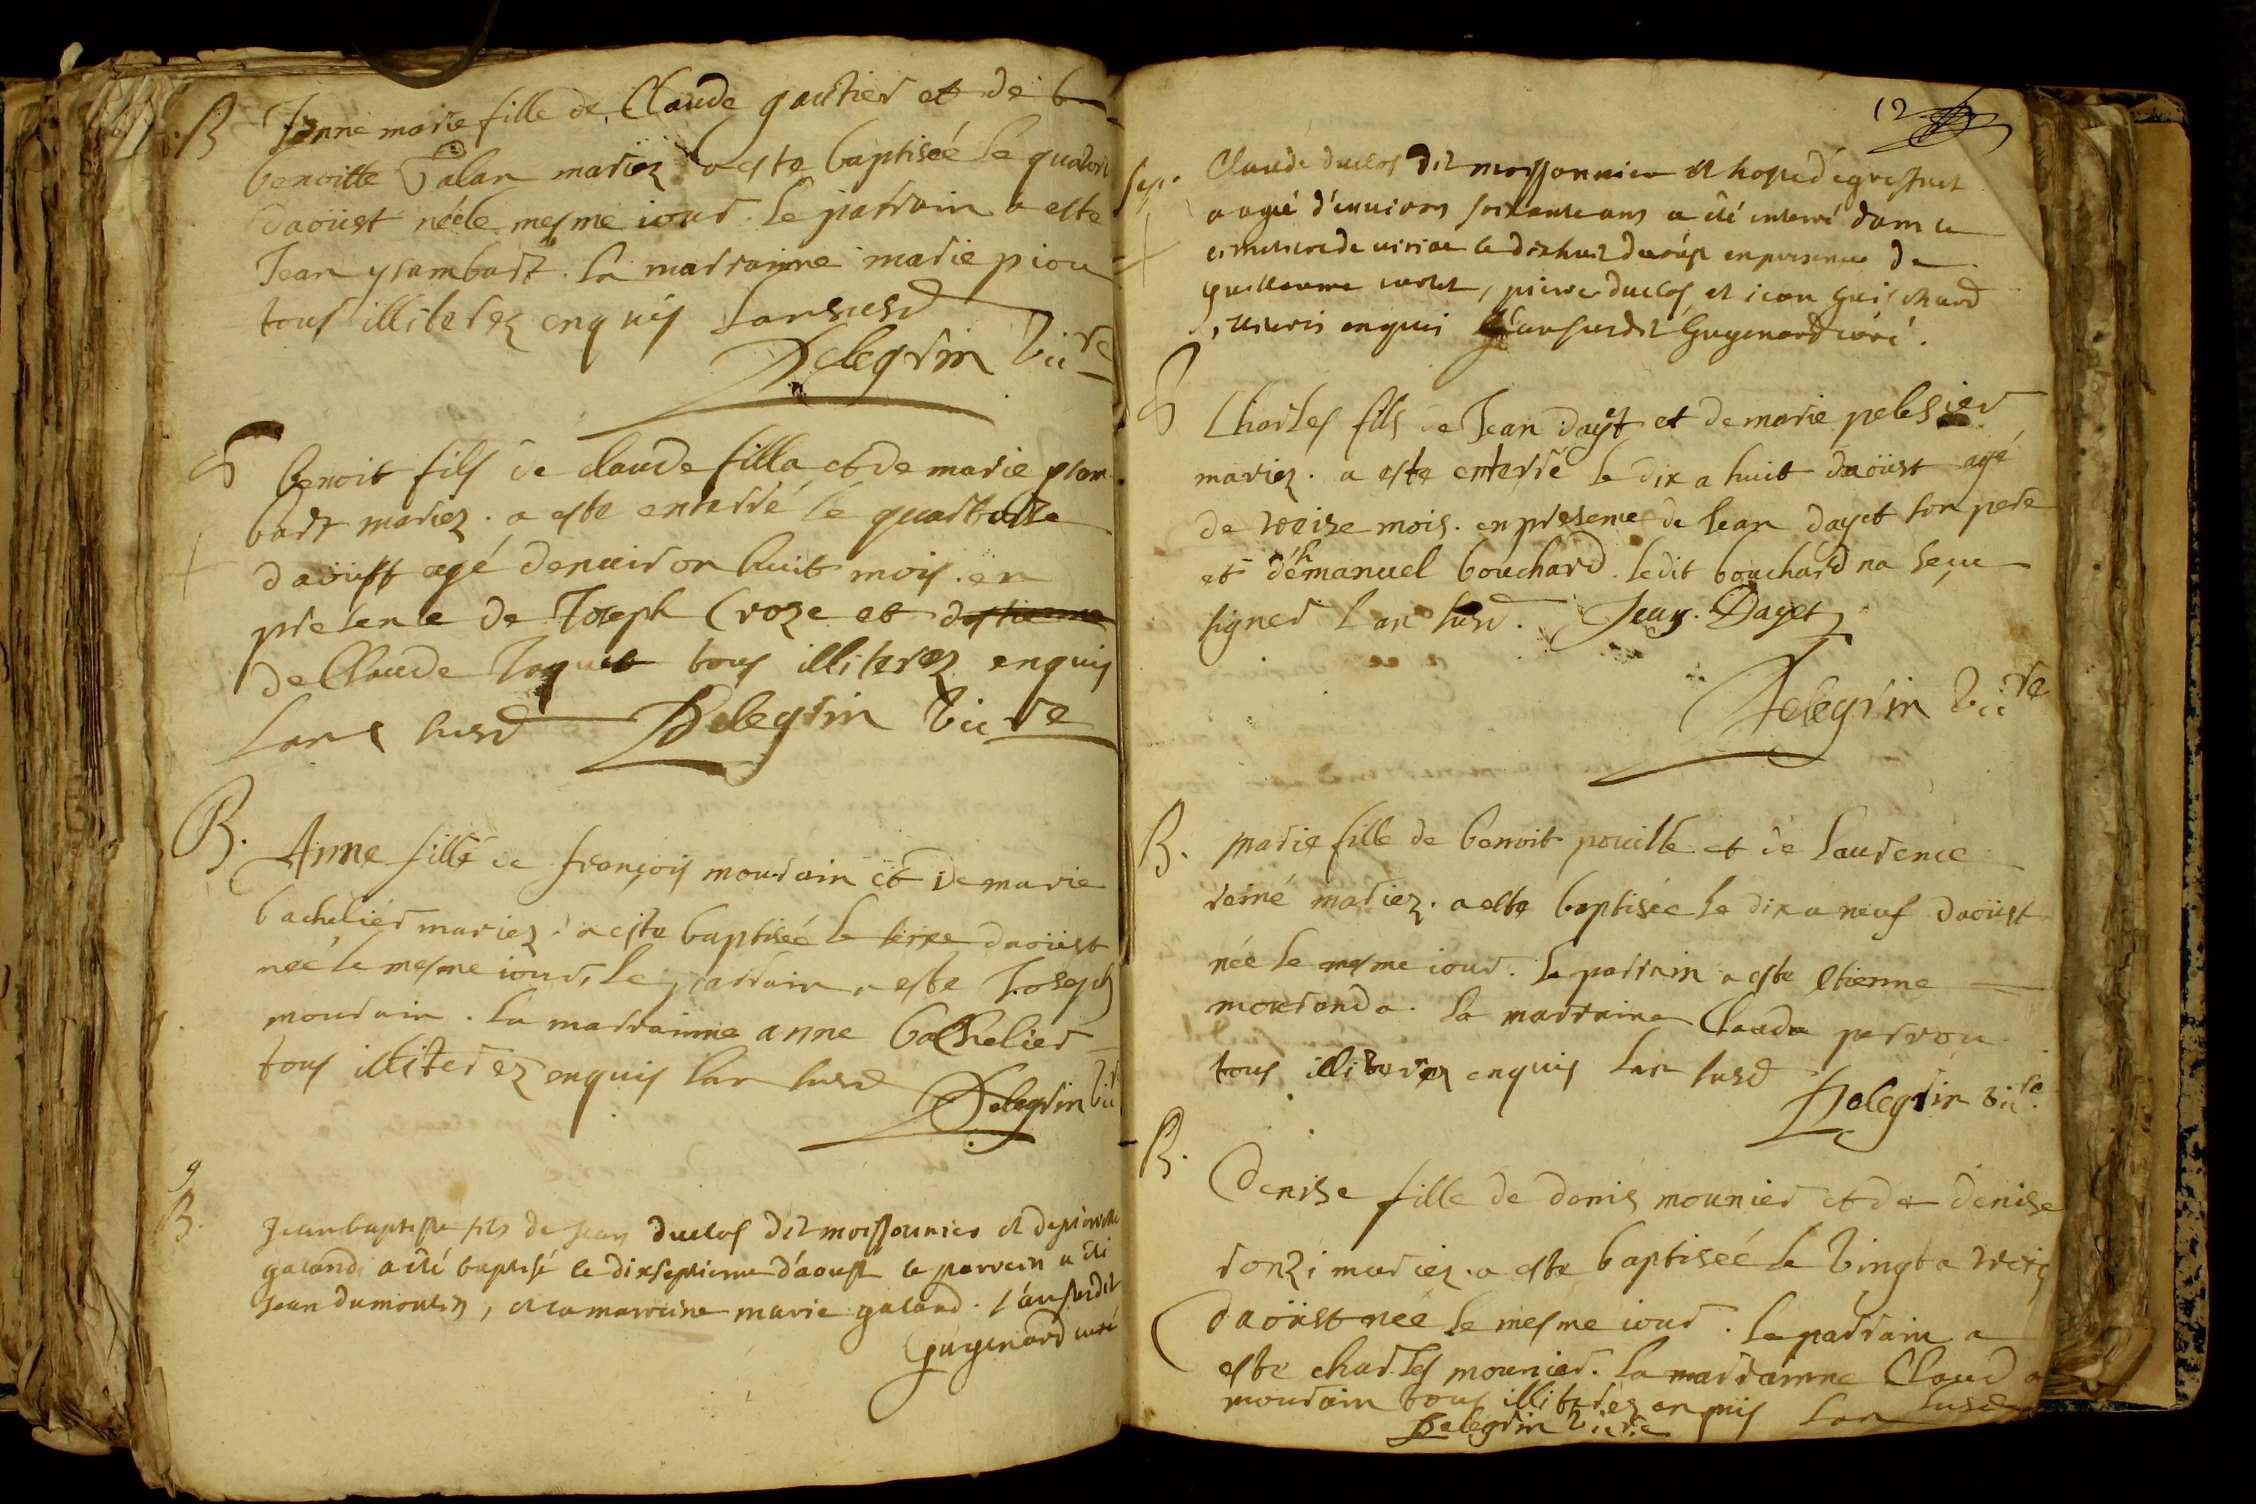 B Jenne marie fille de Claude gautier et de
benoitte Salan mariez a este baptisée le quators
daoust néele mesme iour. le parrain a este
Jean ysambart. la marrainne marie piou
tous illiterez enquis lan susd
Pelegrin viire
S Benoit fils de claude filla et de marie ysam
bart mariez. a este enterré le quatorse
daoust agé denuiron huit mois. en
presence de Joseph Croze et destienne
de Claude Joquet tous illiterez enquis
lan susd Pelegrin viire
B. Anne fille de françois mourain et de marie
bachelier mariez a este baptisée le sesse daoust
née le mesme iour, le parrain a este Joseph
mourain. la marrainne anne bachelier
tous illiterez enquis lan susd Pelegrin vi
9
B. Jean baptiste fils de Jean duclos dit moissonnier et de pierrette
galand a été baptisé le dixseptieme d'aoust le parrein a été
Jean dumoulin, et la marreine marie galand. l'an susdit
Guyenard curé
12
sep. Claude duclos dit moissonnier et hoste d'
aagé d'enuiron soixante ans a été enterré dans le
cimetiere de le dixhuit d'aoust en presence de
guillaume , pierre duclos et jean guichard
enquis l'an susdit Guyenard curé.
S Charles fils de Jean dayt et de marie pelessier
mariez. a este enterré le dix a huit daoust agé
de treise mois. en presence de Jean dayet son pere
et déhmanuel bouchard. ledit bouchard na seu
signer lan susd. Jean. Dayet
Pelegrin viire
B. marie fille de benoit pouille et de laurence
reiné mariez. a este baptisée le dix a neuf daoust
née le mesme iour. le parrain a este etienne
mouranda. la marraine Clauda perrou
tous illiterez enquis lan susd
Pelegrin viire
B. Denise fille de denis mounier et de denise
ronzi mariez. a este baptisée le vingt a treis
daoust née le mesme iour. le parrain a
este charles mounier. la marrainne Clauda
mourain tous illiterez enquis lan susd
Pelegrin viire